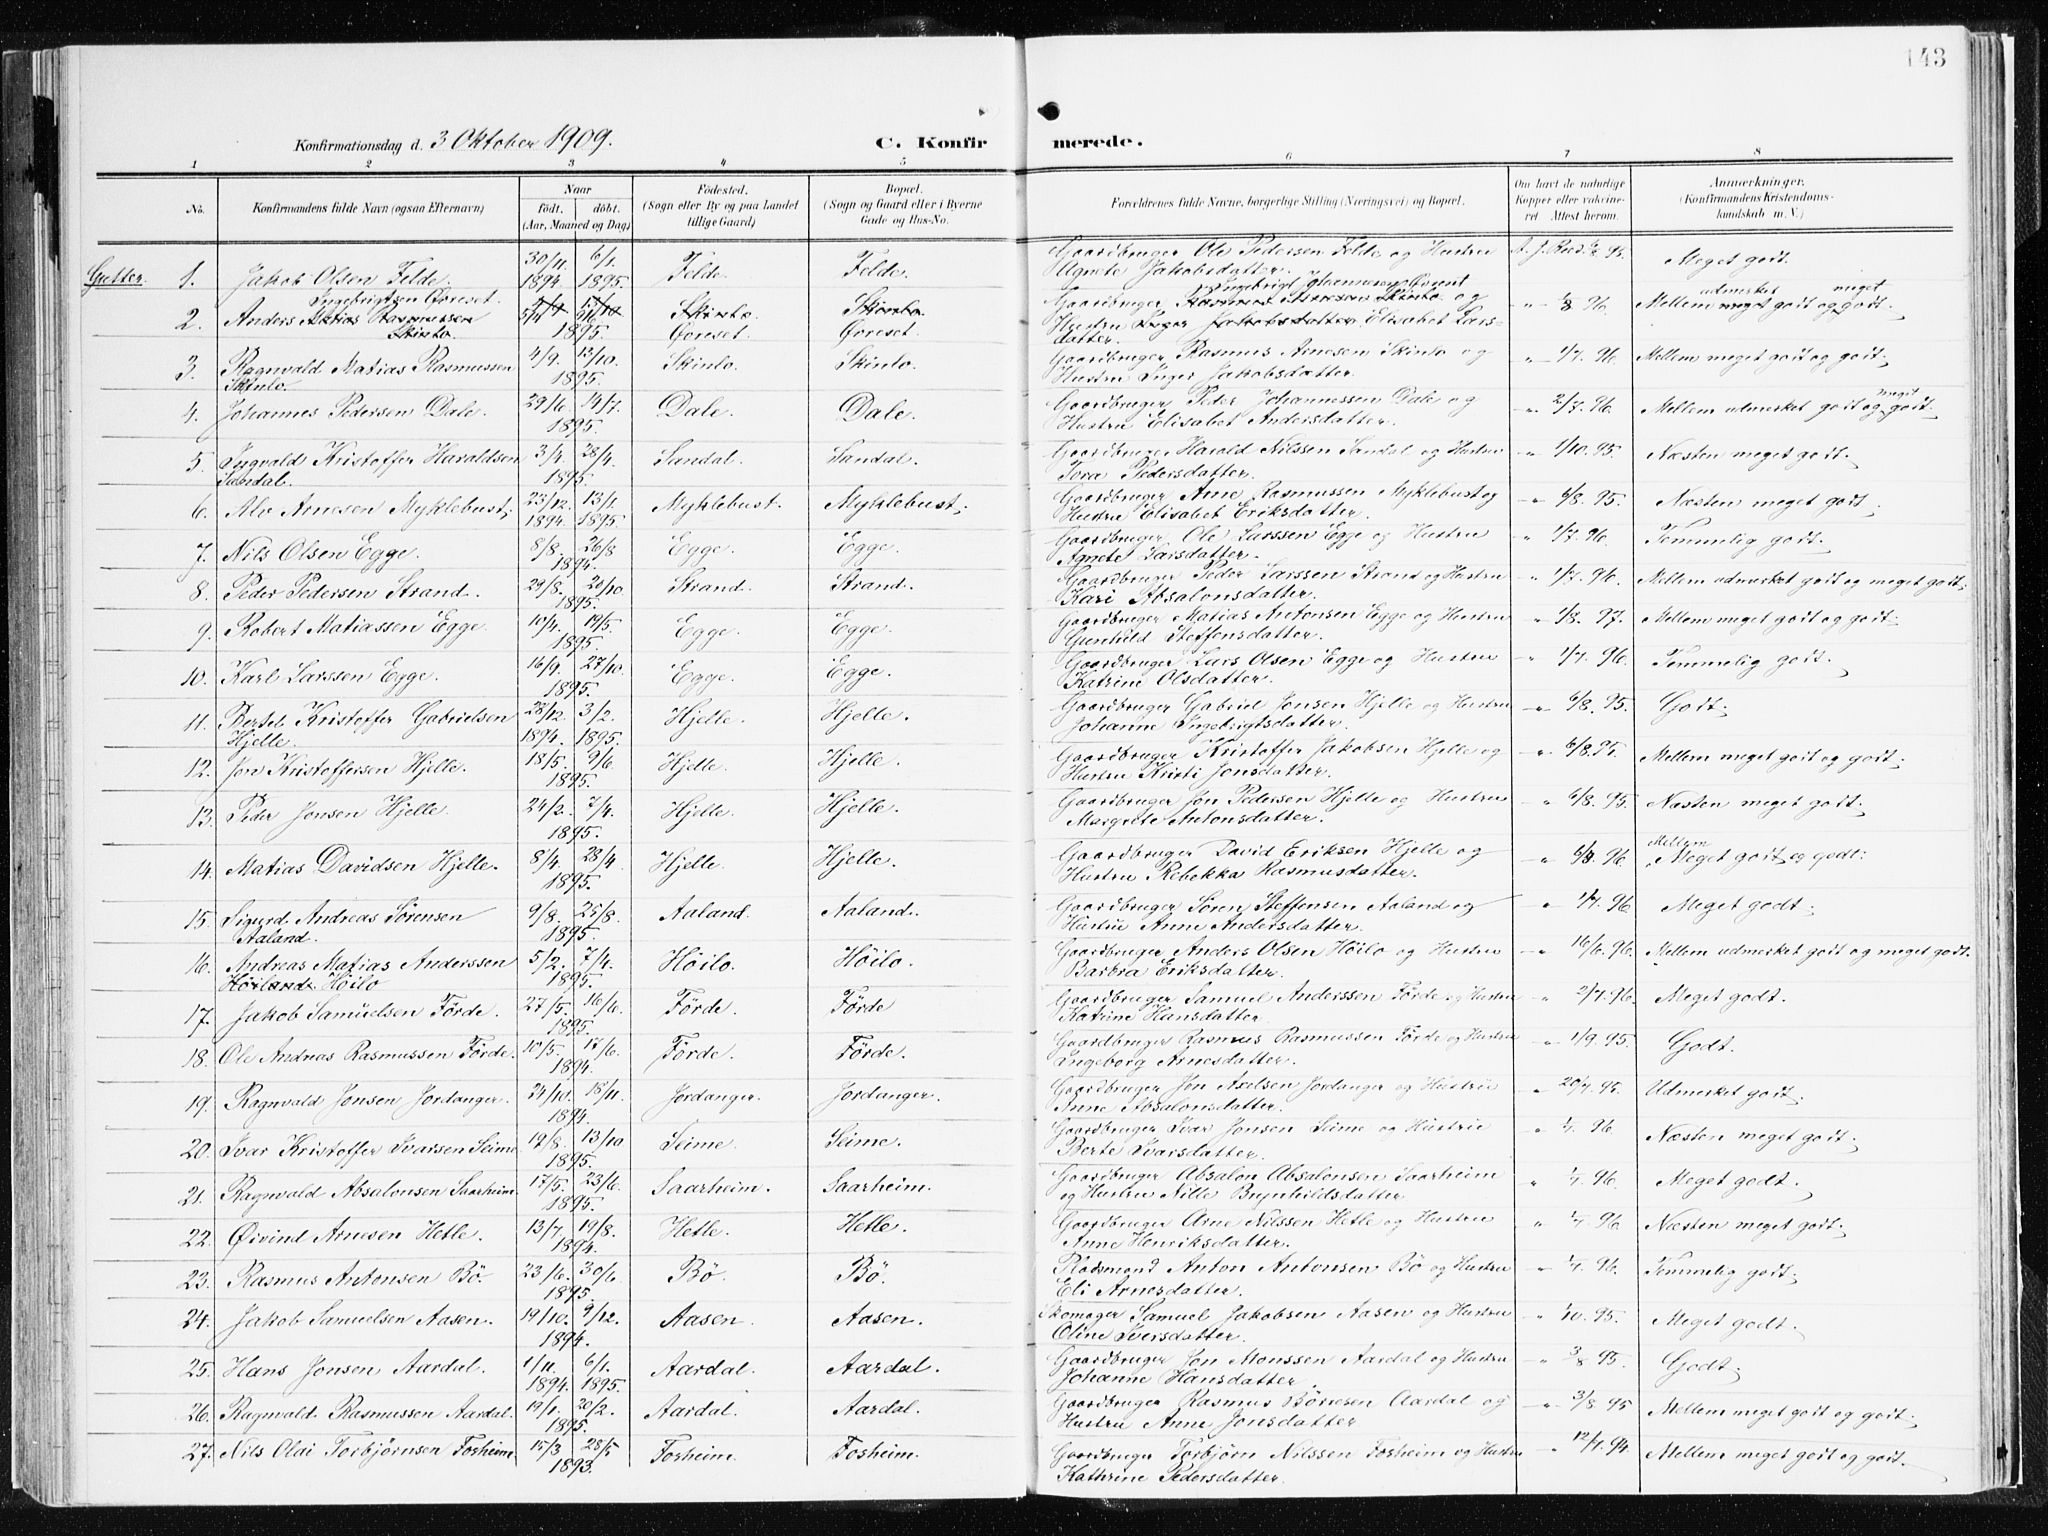 143
Konfirmationsdag d. 3 Oktober 1909. C. Konfirmerede.
1 2 3 4 5 6 7 8
No. Konfirmandens fulde Navn (ogsaa Efternavn) Naar födt. döbt. (Aar, Maaned og Dag) Födested. (Sogn eller By og paa Landet tillige Gaard) Bopæl. (Sogn og Gaard eller i Byerne Gade og Hus-No. Forældrenes fulde Navne, borgerlige Stilling (Næringsvei) og Bopæl. Om havt de naturlige Kopper eller vakcineret Attest herom. Anmærkninger. (Konfirmandens Kristendomskundskab m. V.)
Gutter. 1. Jakob Olsen Felde. 30/11 1894 6/1 1895. Felde. Felde. Gaardbruger Ole Pedersen Felde og Hustru Agnete Jakobsdatter. Meget godt.
2. Anders Ingebrigtsen Goreset. Matias Rasmussen Skinlo. 5/4 1895. Skinlo. Goreset. Skinlo. Goreset. Gaardbruger Rasmus Arnesen Skinlo og Hustru Inger Jakobsdatter Elisabet Larsdatter. " 1/8 96. Mellem udmerket meget godt og meget godt.
3. Ragnvald Matias Rasmussen Skinlo. 4/9. 13/10. 1895. Skinlo. Skinlo. Gaardbruger Rasmus Arnesen Skinlo og Hustru Inger Jakobsdatter. " 1/7. 96. Mellem meget godt og godt.
4. Johannes Pedersen Dale. 29/6. 14/7. 1895. Dale. Dale. Gaardbruger Peder Johannessen Dale og Hustru Elisabet Andersdatter. " 2/7. 96. Mellem udmerket godt og meget godt.
5. Ingvald Kristoffer Haraldsen Sandal. 3/4. 28/4. 1895. Sandal. Sandal. Gaardbruger Harald Nilssen Sandal og Hustru Tora Pedersdatter. " 1/10. 95. Næsten meget godt.
6. Alv Arnesen Myklebust. 23/12. 1894. 13/1. 1895. Myklebust. Myklebust. Gaardbruger Arne Rasmussen Myklebust og Hustru Elisabet Eriksdatter. " 6/8. 95. Næsten meget godt.
7. Nils Olsen Egge. 8/8. 26/8 1894. Egge. Egge. Gaardbruger Ole Larssen Egge og Hustru Agnete Larsdatter. " 1/7. 96. Temmelig godt.
8. Peder Pedersen Strand. 29/8. 20/10. 1895. Strand. Strand. Gaardbruger Peder Larssen Strand og Hustru Kari Absalonsdatter. " 1/7. 96. Mellem udmerket godt og meget godt.
9. Robert Matiassen Egge. 10/4. 19/5. 1895. Egge. Egge. Gaardbruger Matias Antonsen Egge og Hustru Gunhild Steffensdatter. " 1/8. 97. Mellem meget godt og godt.
10. Karl Larssen Egge. 16/9. 27/10. 1895. Egge. Egge. Gaardbruger Lars Olsen Egge og Hustru Katrine Olsdatter. " 1/7. 96. Temmelig godt.
11. Bertel Kristoffer Gabrielsen Hjelle. 28/12. 1894. 3/2. 1895. Hjelle. Hjelle. Gaardbruger Gabriel Jonsen Hjelle og Hustru Johanne Ingebrigtsdatter. " 6/8. 95. Godt.
12. Jon Kristoffersen Hjelle. 18/5. 9/6. 1895. Hjelle. Hjelle. Gaardbruger Kristoffer Jakobsen Hjelle og Hustru Kristi Jonsdatter. " 6/8. 95. Mellem meget godt og godt.
13. Peder Jonsen Hjelle. 24/2. 7/4. 1895. Hjelle. Hjelle. Gaardbruger Jon Pedersen Hjelle og Hustru Margrete Antonsdatter. " 6/8. 95. Næsten meget godt.
14. Matias Davidsen Hjelle. 8/4. 28/4 1895. Hjelle. Hjelle. Gaardbruger David Eriksen Hjelle og Hustru Rebekka Rasmusdatter. " 96. Mellem Meget godt og godt.
15. Sigurd Andreas Sörensen Aaland. 9/8. 25/8. 1895. Aaland. Aaland. Gaardbruger Sören Steffensen Aaland og Hustru Anne Andersdatter. " 1/7. 96. Meget godt.
16. Andreas Matias Anderssen Höiland. Höilo 5/2. 7/4. 1895. Höilo. Höilo. Gaardbruger Anders Olsen Höilo og Hustru Barbra Eriksdatter. " 16/6. 96. Mellem udmerket godt og meget godt.
17. Jakob Samuelsen Förde. 27/5. 16/6. 1895. Förde. Förde Gaardbruger Samuel Anderssen Förde og Hustru Katrine Hansdatter. " 2/7. 96. Meget godt.
18. Ole Andreas Rasmussen Förde. 10/5. 17/6. 1894. Förde. Förde. Gaardbruger Rasmus Rasmussen Förde og Hustru Ingeborg Arnesdatter. " 1/9. 95. Godt.
19. Ragnvald Jonsen Jordanger. 24/10. 18/11. 1894. Jordanger. Jordanger. Gaardbruger Jon Axelsen Jordanger og Hustru Anne Absalonsdatter. " 20/7. 95. Udmerket godt.
20. Ivar Kristoffer Ivarsen Seime 19/8. 13/10 1895. Seime. Seime. Gaardbruger Ivar Jonsen Seime og Hustru Berte Ivarsdatter. " 1/7. 96. Næsten meget godt.
21. Ragnvald Absalonsen Saarheim. 17/5. 23/6. 1895. Saarheim. Saarheim. Gaardbruger Absalon Absalonsen Saarheim og Hustru Nille Brynhildsdatter. " 1/7. 96. Meget godt.
22. Øivind Arnesen Hetle. 13/7. 19/8. 1894. Hetle. Hetle. Gaardbruger Arne Nilssen Hetle og Hustru Anne Henriksdatter. " 1/7. 96. Næsten meget godt.
23. Rasmus Antonsen Bö. 23/6. 30/6 1895. Bö. Bö. Rådsmand Anton Antonsen Bö og Hustru Eli Arnesdatter. " 1/7. 96. Temmelig godt.
24. Jakob Samuelsen Aasen. 19/10. 9/12. 1894. Aasen. Aasen. Skomager Samuel Jakobsen Aasen og Hustru Oline Iversdatter. " 1/10. 95. Meget godt.
25. Hans Jonsen Aardal. 1/11. 1894. 6/1. 1895. Aardal. Aardal. Gaardbruger Jon Monssen Aardal og Hustru Johanne Hansdatter. " 3/8 95. Godt.
26. Ragnvald Rasmussen Aardal. 19/1. 20/2. 1895. Aardal. Aardal. Gaardbruger Rasmus Börresen Aardal og Hustru Anne Jonsdatter. " 3/8. 95 Mellem meget godt og godt.
27. Nils Olai Torbjörnsen Fosheim 15/3 28/5 1893. Fosheim. Fosheim. Gaardbruger Torbjörn Nilssen Fosheim og Hustru Kathrine Pedersdatter. " 12/7. 94. Mellem meget godt og godt.